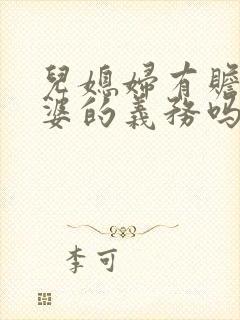 兒媳婦有贍
婆的義務嗎
李可